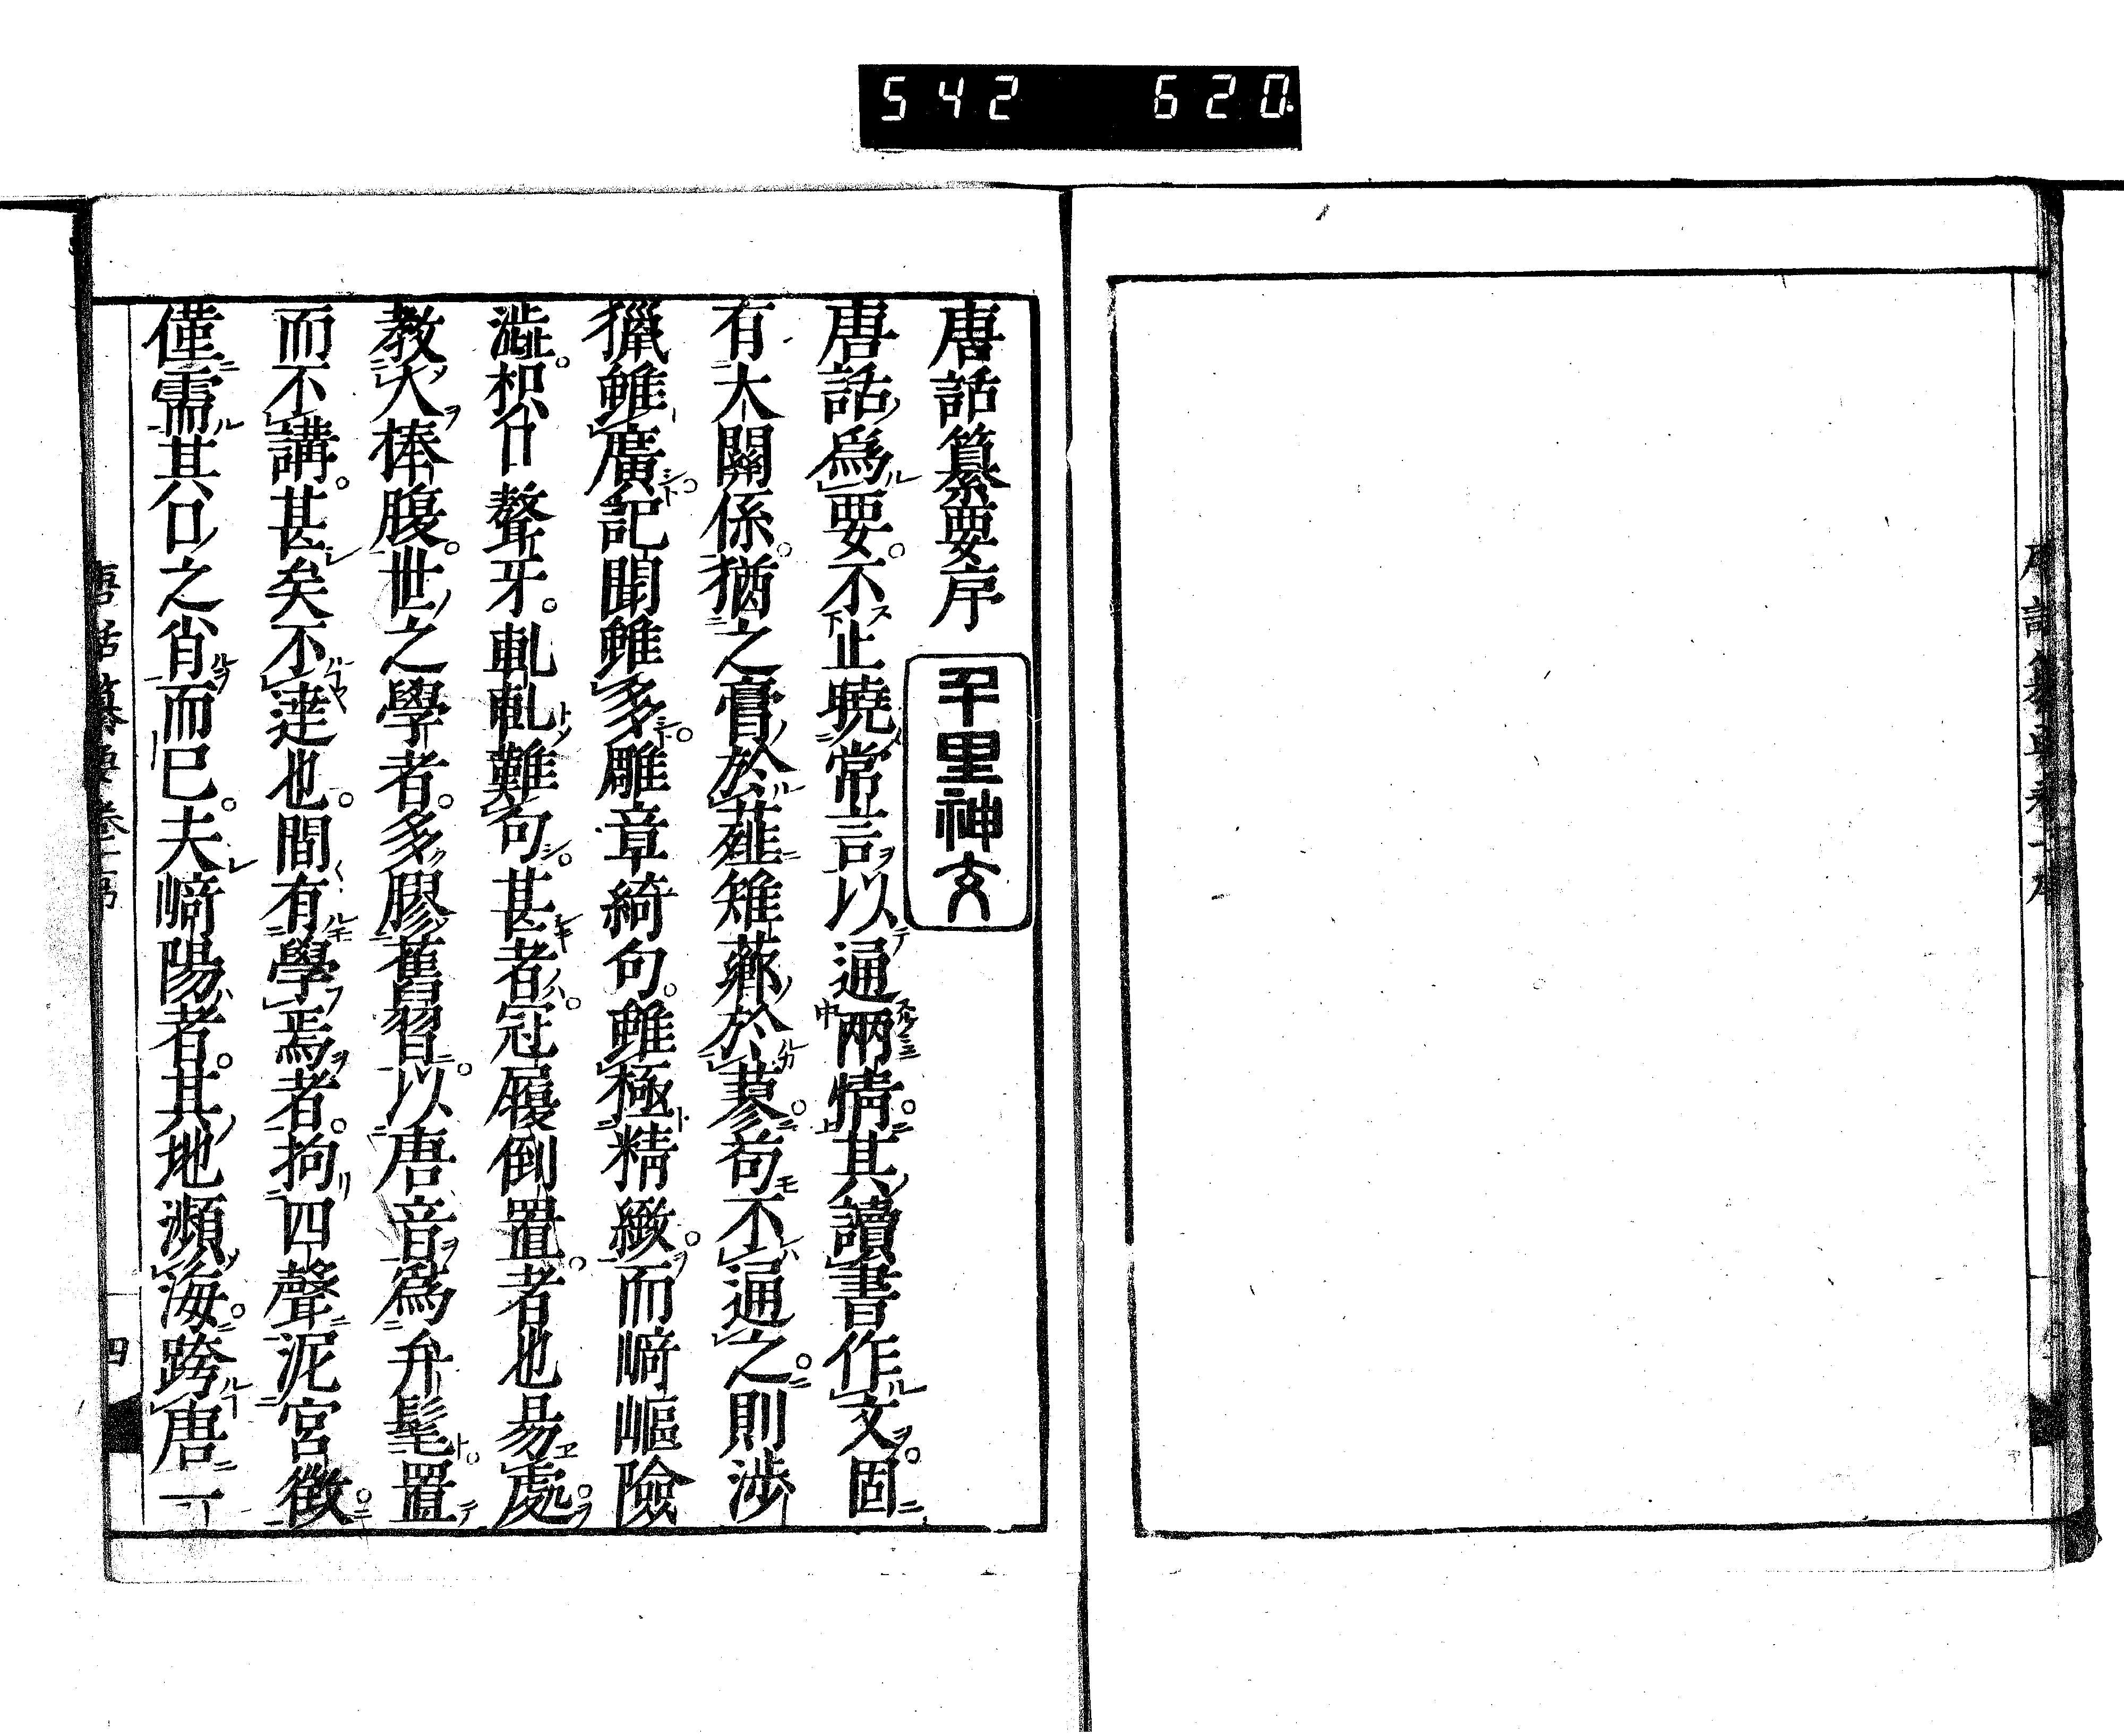 542 620
唐話纂要序
千里神交
唐話爲要不止曉常言以通兩情其讀書作文固
有大關係猶之膏於薤雉薌於蓼苟不通之則渉
獵雖廣記聞雖多雕章綺句雖極精緻而崎嶇險
澁枳什聱牙軋軋難句甚者冠履倒置者也易處
教人捧腹世之學者多膠舊習以唐音爲弁髦置
而不講甚矣不達也間有學焉者拘四聲泥宮徵
僅需其口之肖而已夫崎陽者其地瀕海跨唐一
唐話纂要卷一序
四